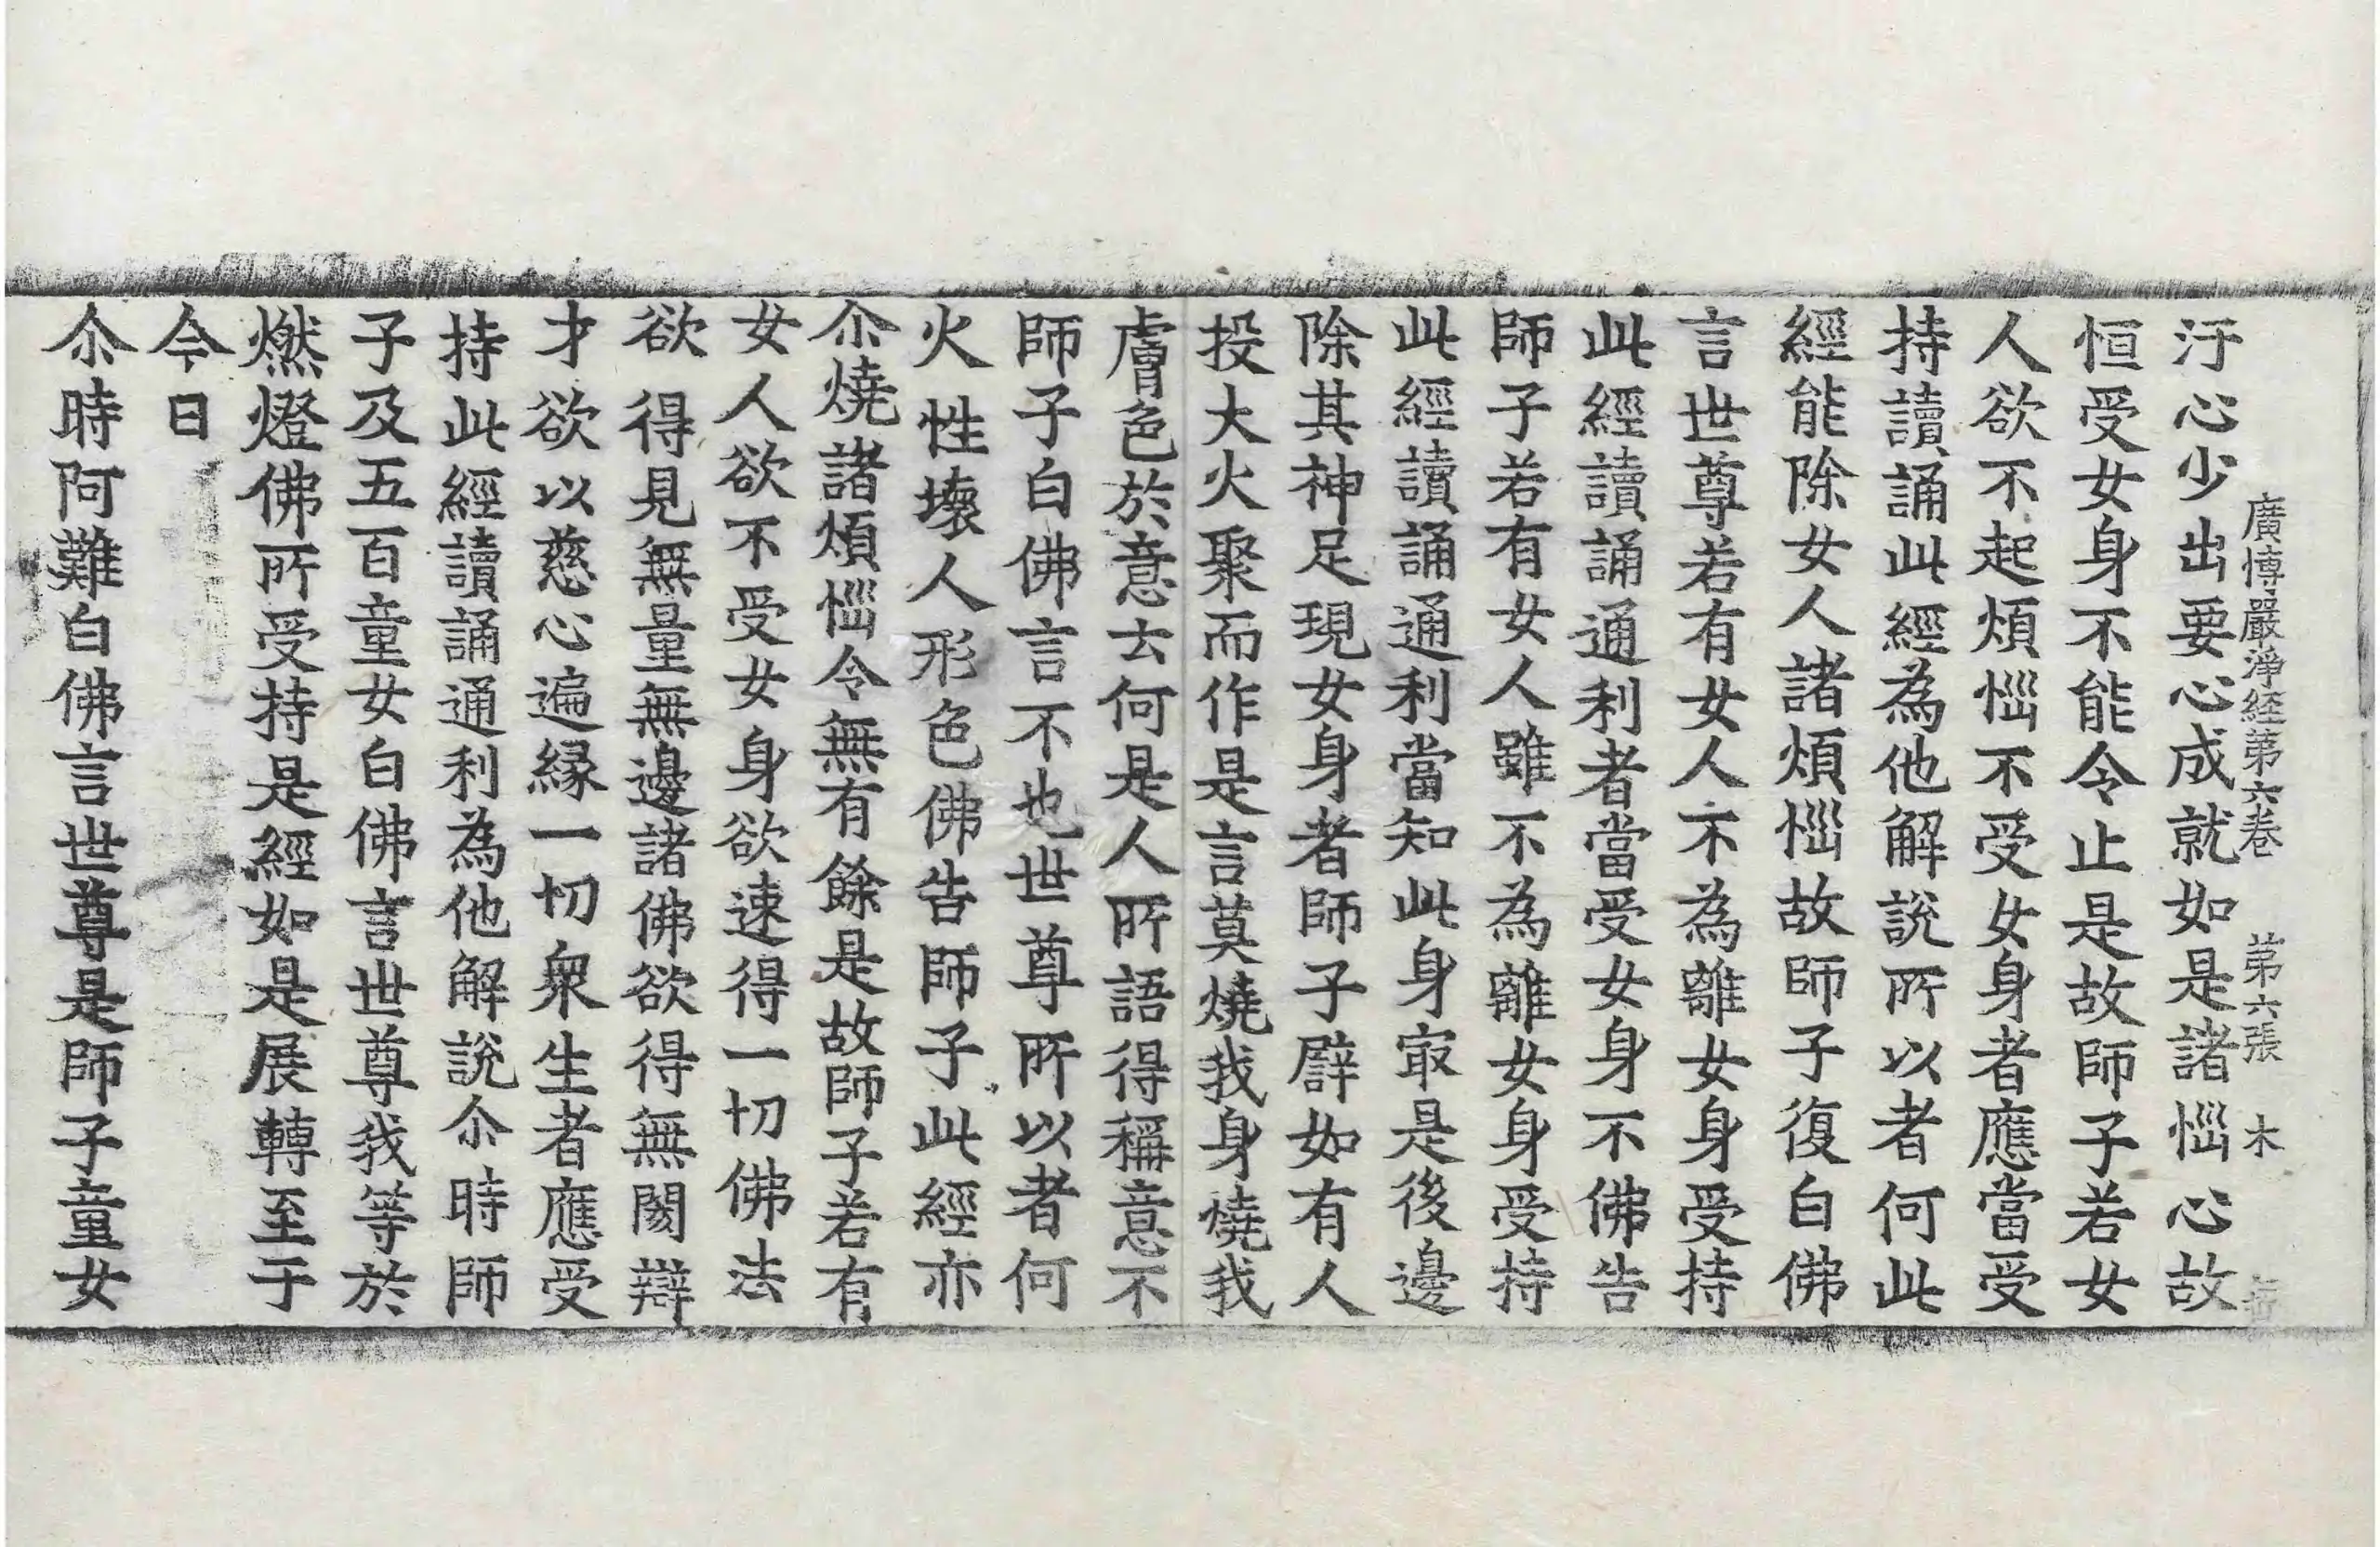 廣博嚴淨経第六卷 第六張 木
汙心少出要心成就如是諸惱心故
恒受女身不能令止是故師子若女
人欲不起煩惱不受女身者應當受
持讀誦此經為他解說所以者何此
經能除女人諸煩惱故師子復白佛
言世尊若有女人不為離女身受持
此經讀誦通利者當受女身不佛告
師子若有女人雖不為離女身受持
此經讀誦通利當知此身㝡是後邊
除其神足現女身者師子譬如有人
投大火聚而作是言莫燒我身燒我
膚色於意云何是人所語得稱意不
師子白佛言不也世尊所以者何
火性壞人形色佛告師子此經亦
尒燒諸煩惱令無有餘是故師子若有
女人欲不受女身欲速得一切佛法
欲得見無量無邊諸佛欲得無閡辯
才欲以慈心遍縁一切衆生者應受
持此經讀誦通利為他解說尒時師
子及五百童女白佛言世尊我等於
燃燈佛所受持是經如是展轉至于
今日
尒時阿難白佛言世尊是師子童女